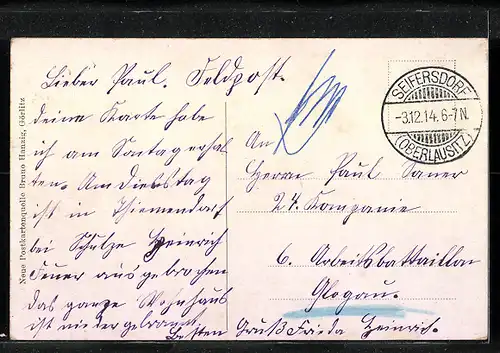 Lieber Paul. Feldpost.
deine Karte habe
ich am Sontag erhal
ten. Am Dienstag
ist in Thiemendorf
bei Schulze Heinrich
Feuer ausgebrochen
das ganze Wohnhaus
ist nieder gebrannt
Besten Gruß Frida Heinrich.
Neue Postkartenquelle Bruno Hanzig, Görlitz
SEIFERSDORF
-3.12.14. 6-7N.
(OBERLAUSITZ)
An
Herrn Paul
24. Kompanie
6. Arbeitsbattaillon
Glogau.